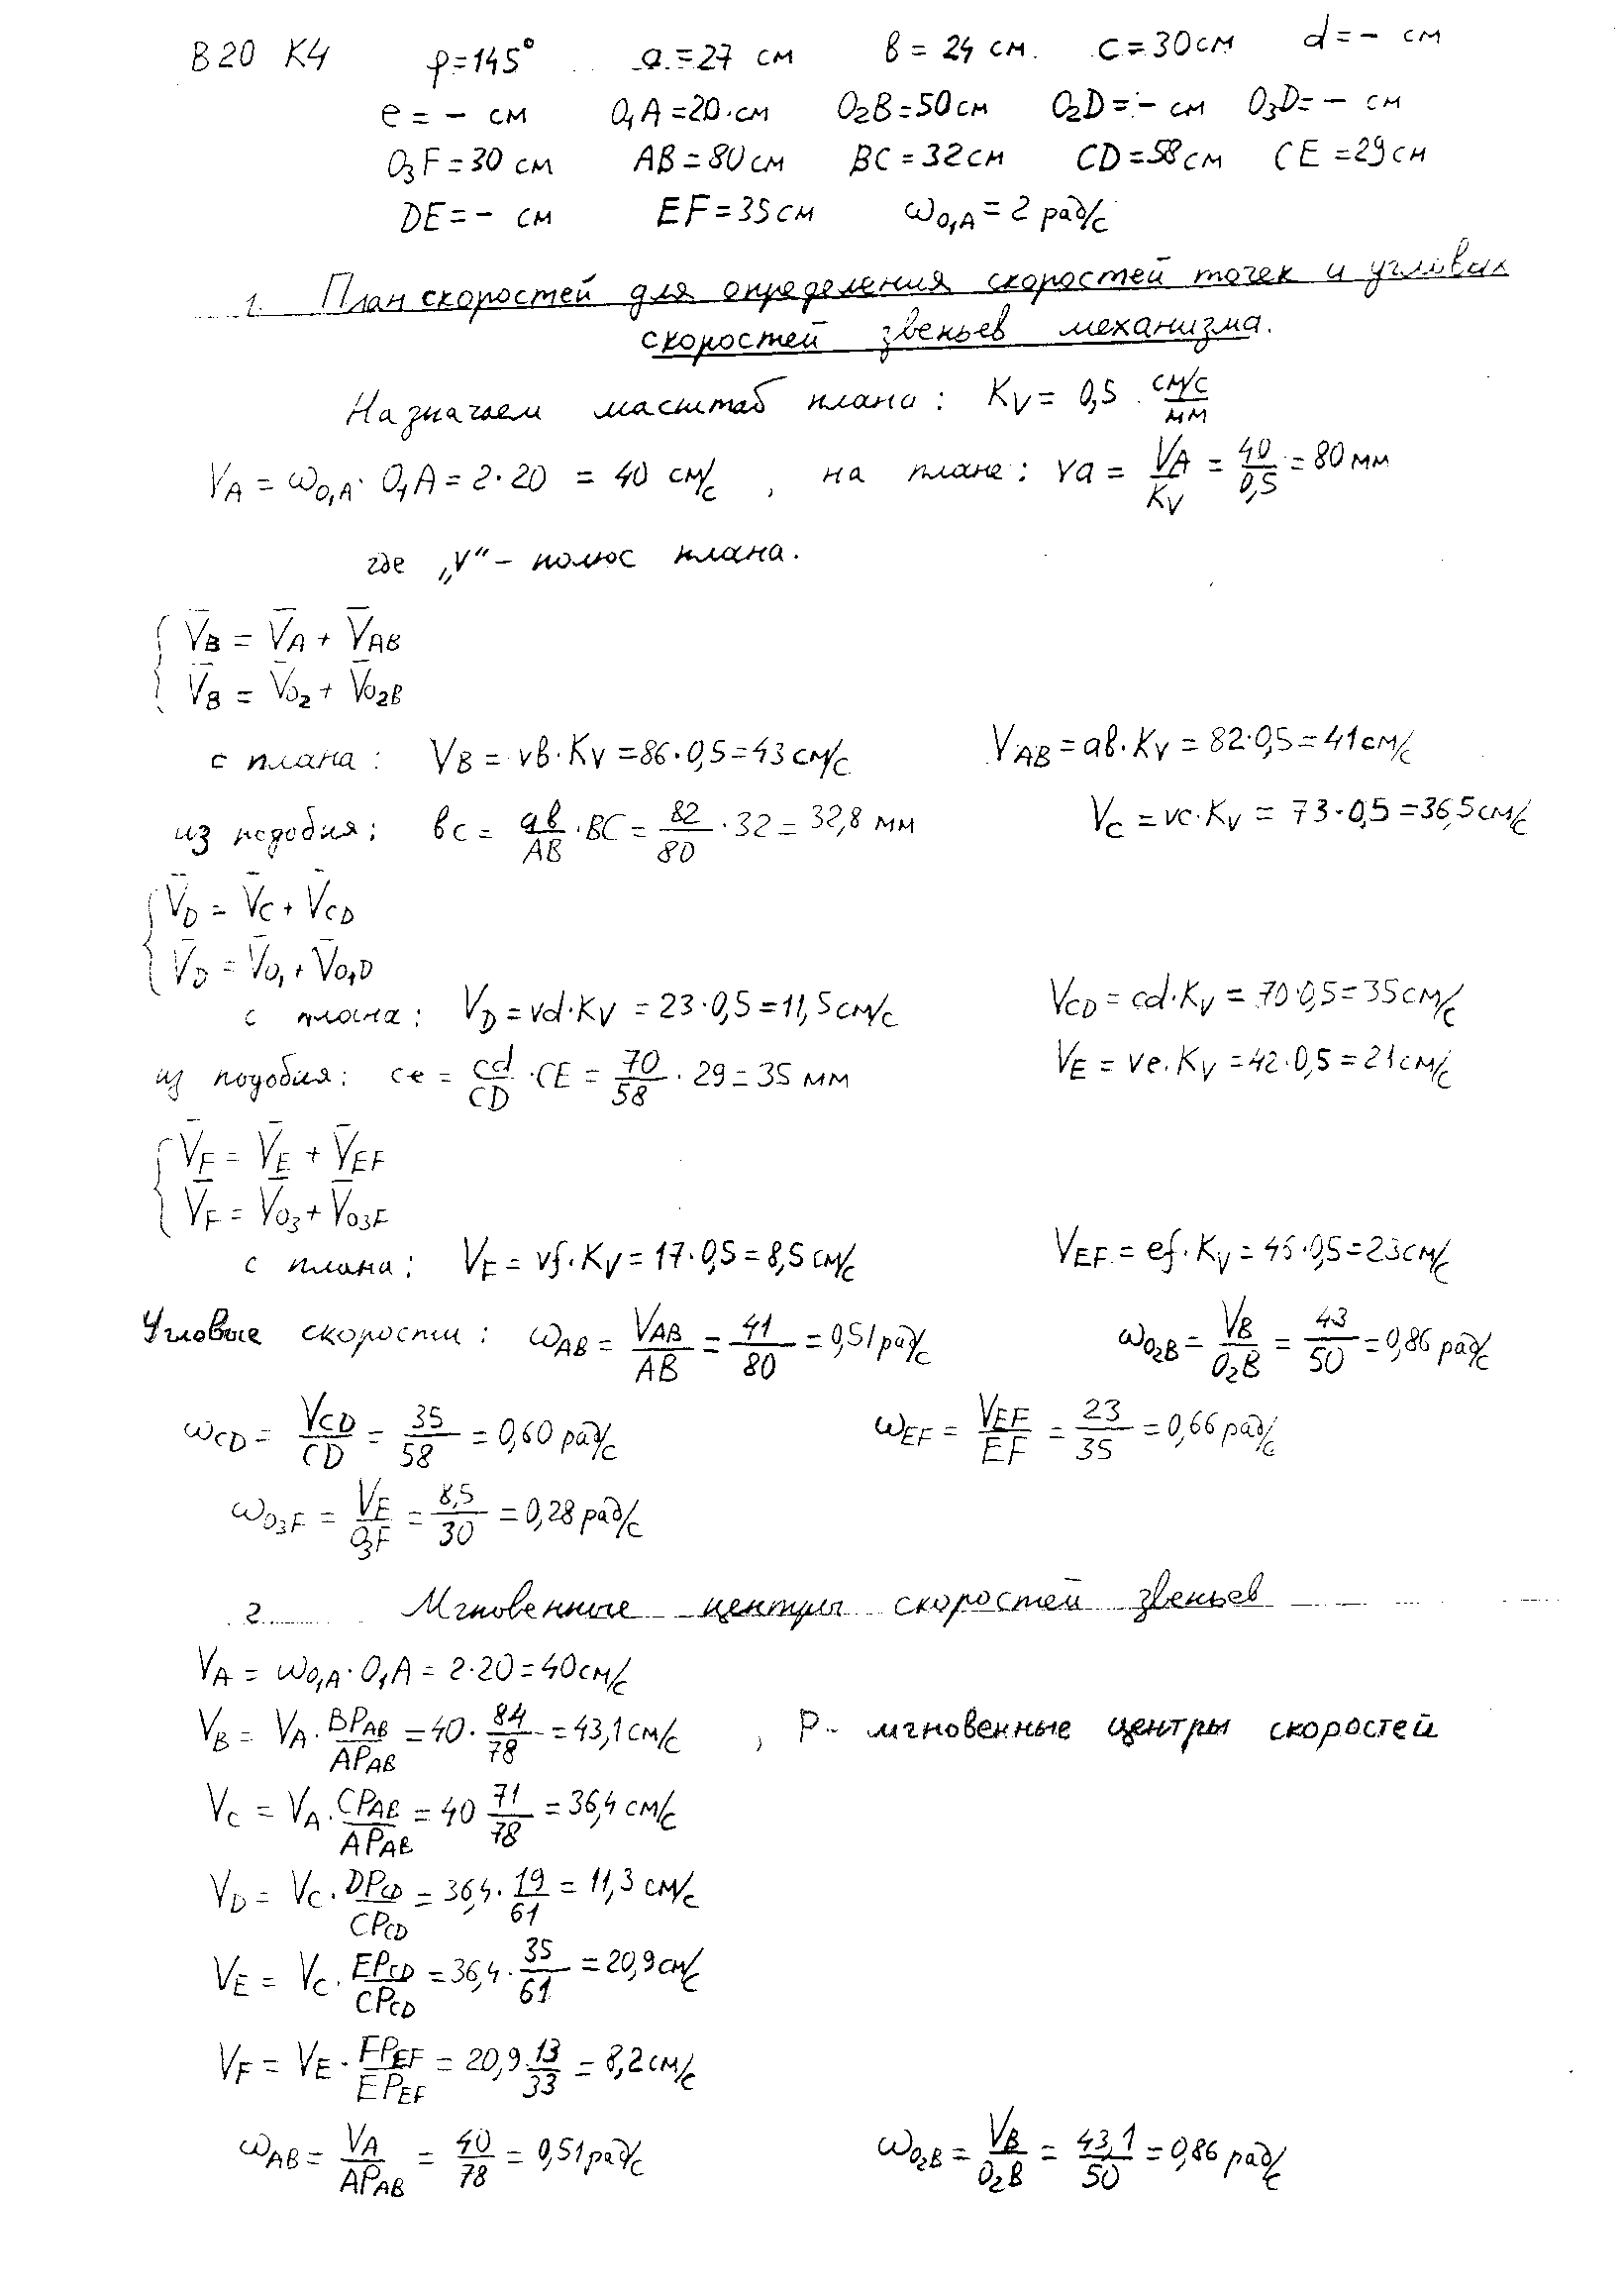 В20 К4 φ=145° a=27 см в=24 см. c=30см d=- см
e=- см O₁A=20 см O₂B=50см O₂D=- см O₃D=- см
O₃F=30 см AB=80см BC=32см CD=58см CE=29см
DE=- см EF=35см ω_O₁A=2 рад/с
1. План скоростей для определения скоростей точек и угловых
скоростей звеньев механизма.
Назначаем масштаб плана: K_V = 0,5 (см/с)/мм
V_A = ω_O₁A · O₁A = 2·20 = 40 см/с, на плане: va = V_A/K_V = 40/0,5 = 80мм
где „V“ - полюс плана.
V̄_B = V̄_A + V̄_AB
V̄_B = V̄_O₂ + V̄_O₂B
с плана: V_B = vв·K_V = 86·0,5 = 43 см/с V_AB = aв·K_V = 82·0,5 = 41см/с
из подобия: вc = aв/AB · BC = 82/80 · 32 = 32,8 мм V_C = vc·K_V = 73·0,5 = 36,5см/с
V̄_D = V̄_C + V̄_CD
V̄_D = V̄_O₁ + V̄_O₁D
с плана: V_D = vd·K_V = 23·0,5 = 11,5см/с V_CD = cd·K_V = 70·0,5 = 35см/с
из подобия: ce = cd/CD · CE = 70/58 · 29 = 35 мм V_E = ve·K_V = 42·0,5 = 21см/с
V̄_F = V̄_E + V̄_EF
V̄_F = V̄_O₃ + V̄_O₃F
с плана: V_F = vf·K_V = 17·0,5 = 8,5см/с V_EF = ef·K_V = 46·0,5 = 23см/с
Угловые скорости: ω_AB = V_AB/AB = 41/80 = 0,51рад/с ω_O₂B = V_B/O₂B = 43/50 = 0,86 рад/с
ω_CD = V_CD/CD = 35/58 = 0,60 рад/с ω_EF = V_EF/EF = 23/35 = 0,66рад/с
ω_O₃F = V_F/O₃F = 8,5/30 = 0,28рад/с
2. Мгновенные центры скоростей звеньев
V_A = ω_O₁A · O₁A = 2·20 = 40см/с
V_B = V_A · BP_AB/AP_AB = 40 · 84/78 = 43,1см/с, P - мгновенные центры скоростей
V_C = V_A · CP_AB/AP_AB = 40 71/78 = 36,4 см/с
V_D = V_C · DP_CD/CP_CD = 36,4 · 19/61 = 11,3 см/с
V_E = V_C · EP_CD/CP_CD = 36,4 · 35/61 = 20,9см/с
V_F = V_E · FP_EF/EP_EF = 20,9 13/33 = 8,2см/с
ω_AB = V_A/AP_AB = 40/78 = 0,51рад/с ω_O₂B = V_B/O₂B = 43,1/50 = 0,86 рад/с